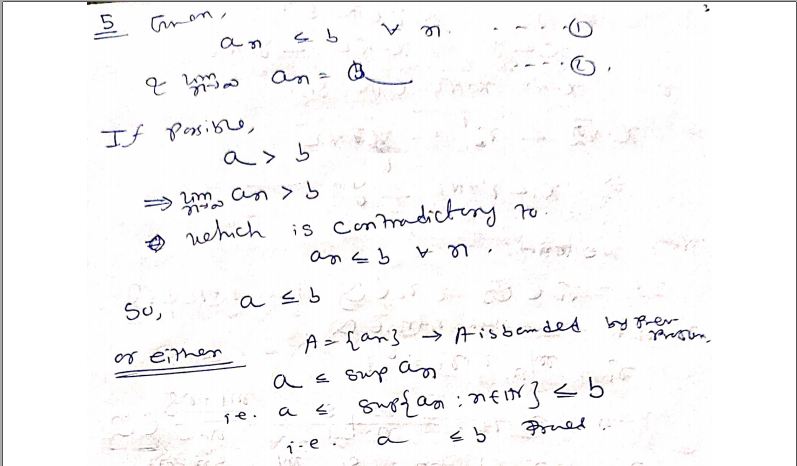 5 Given,
an ≤ b ∀ n. - - - - ①
& lim n→∞ an = a - - - - ②.
If possible,
a > b
⇒ lim n→∞ an > b
which is contradictory to
an ≤ b ∀ n.
So, a ≤ b
or either A = {an} → A is bounded by prev
a ≤ sup an
i.e. a ≤ sup{an : n∈ℕ} ≤ b
i.e. a ≤ b Proved.